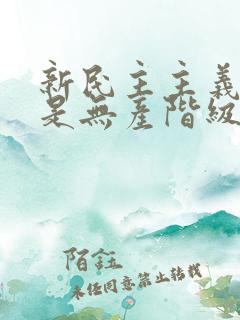 新民主主義
是無産階級
陌鈺
未经同意禁止转载